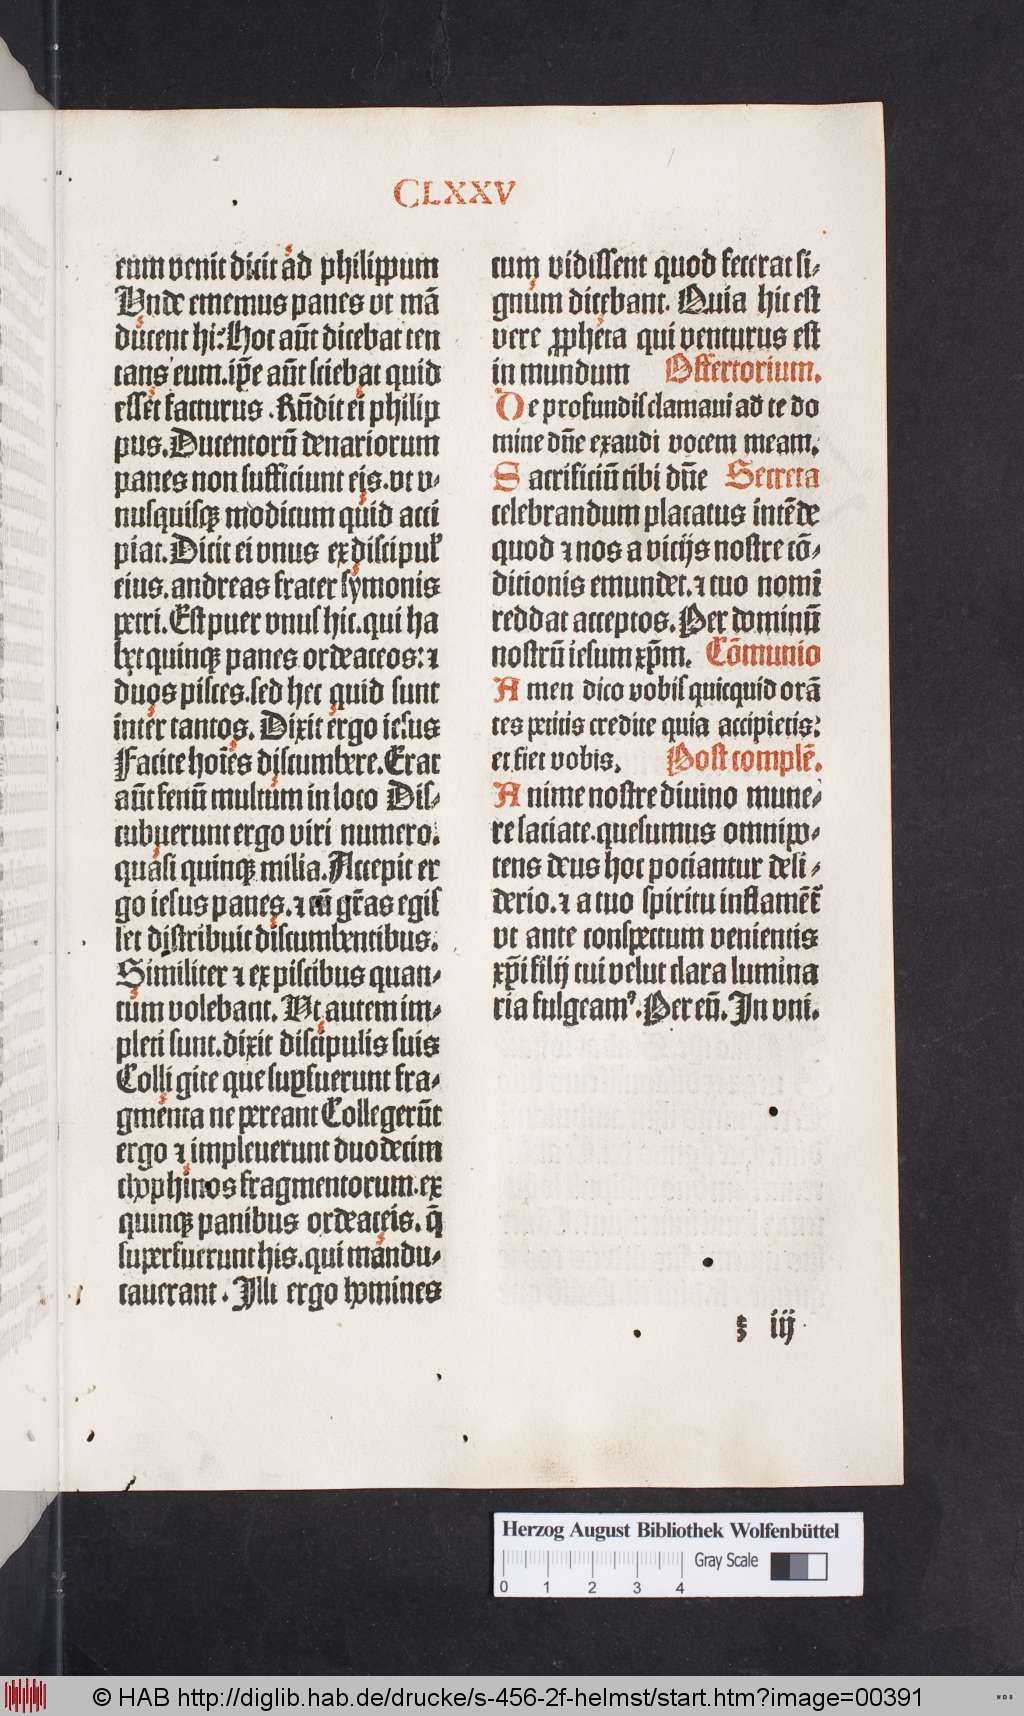 CLXXV
eum venit dicit ad philippum
Unde ememus panes vt mā
ducent hi: Hoc aūt dicebat ten
tans eum. ip̄e aūt sciebat quid
esset facturus. Rn̄dit ei philip
pus. Ducentorū denariorum
panes non sufficiunt eis. vt v⸗
nusquisqꝫ modicum quid acci
piat. Dicit ei vnus ex discipul̕
eius. andreas frater symonis
petri. Est puer vnus hic. qui ha
bet quinqꝫ panes ordeaceos: ⁊
duos pisces. sed hec quid sunt
inter tantos. Dixit ergo iesus
Facite hoīes discumbere. Erat
aūt fenū multum in loco Dis⸗
cubuerunt ergo viri numero.
quasi quinqꝫ milia. Accepit er
go iesus panes. ⁊ cū gr̄as egis
set distribuit discumbentibus.
Similiter ⁊ ex piscibus quan⸗
tum volebant. Ut autem im⸗
pleti sunt. dixit discipulis suis
Colligite que supfuerunt fra⸗
gmenta ne pereant Collegerūt
ergo ⁊ impleuerunt duodecim
chophinos fragmentorum. ex
quinqꝫ panibus ordeaceis. q̄
superfuerunt his. qui mandu⸗
cauerant. Illi ergo homines
cum vidissent quod fecerat si⸗
gnum dicebant. Quia hic est
vere ꝓpheta qui venturus est
in mundum Offertorium.
De profundis clamaui ad te do
mine dn̄e exaudi vocem meam.
Sacrificiū tibi dn̄e Secreta
celebrandum placatus intēde
quod ⁊ nos a vicijs nostre cō⸗
dicionis emundet. ⁊ tuo nomī
reddat acceptos. Per dominū
nostrū iesum xp̄m. Cōmunio
Amen dico vobis quicquid orā
tes petitis credite quia accipietis:
et fiet vobis. Post complē.
Anime nostre diuino mune⸗
re saciate. quesumus omnipo⸗
tens deus hoc pociantur desi⸗
derio. ⁊ a tuo spiritu inflamēt᷑
vt ante conspectum venientis
xp̄i filij tui velut clara lumina
ria fulgeamꝰ. Per eū. In vni.
ꝫ iij
Herzog August Bibliothek Wolfenbüttel
Gray Scale
0 1 2 3 4
© HAB http://diglib.hab.de/drucke/s-456-2f-helmst/start.htm?image=00391